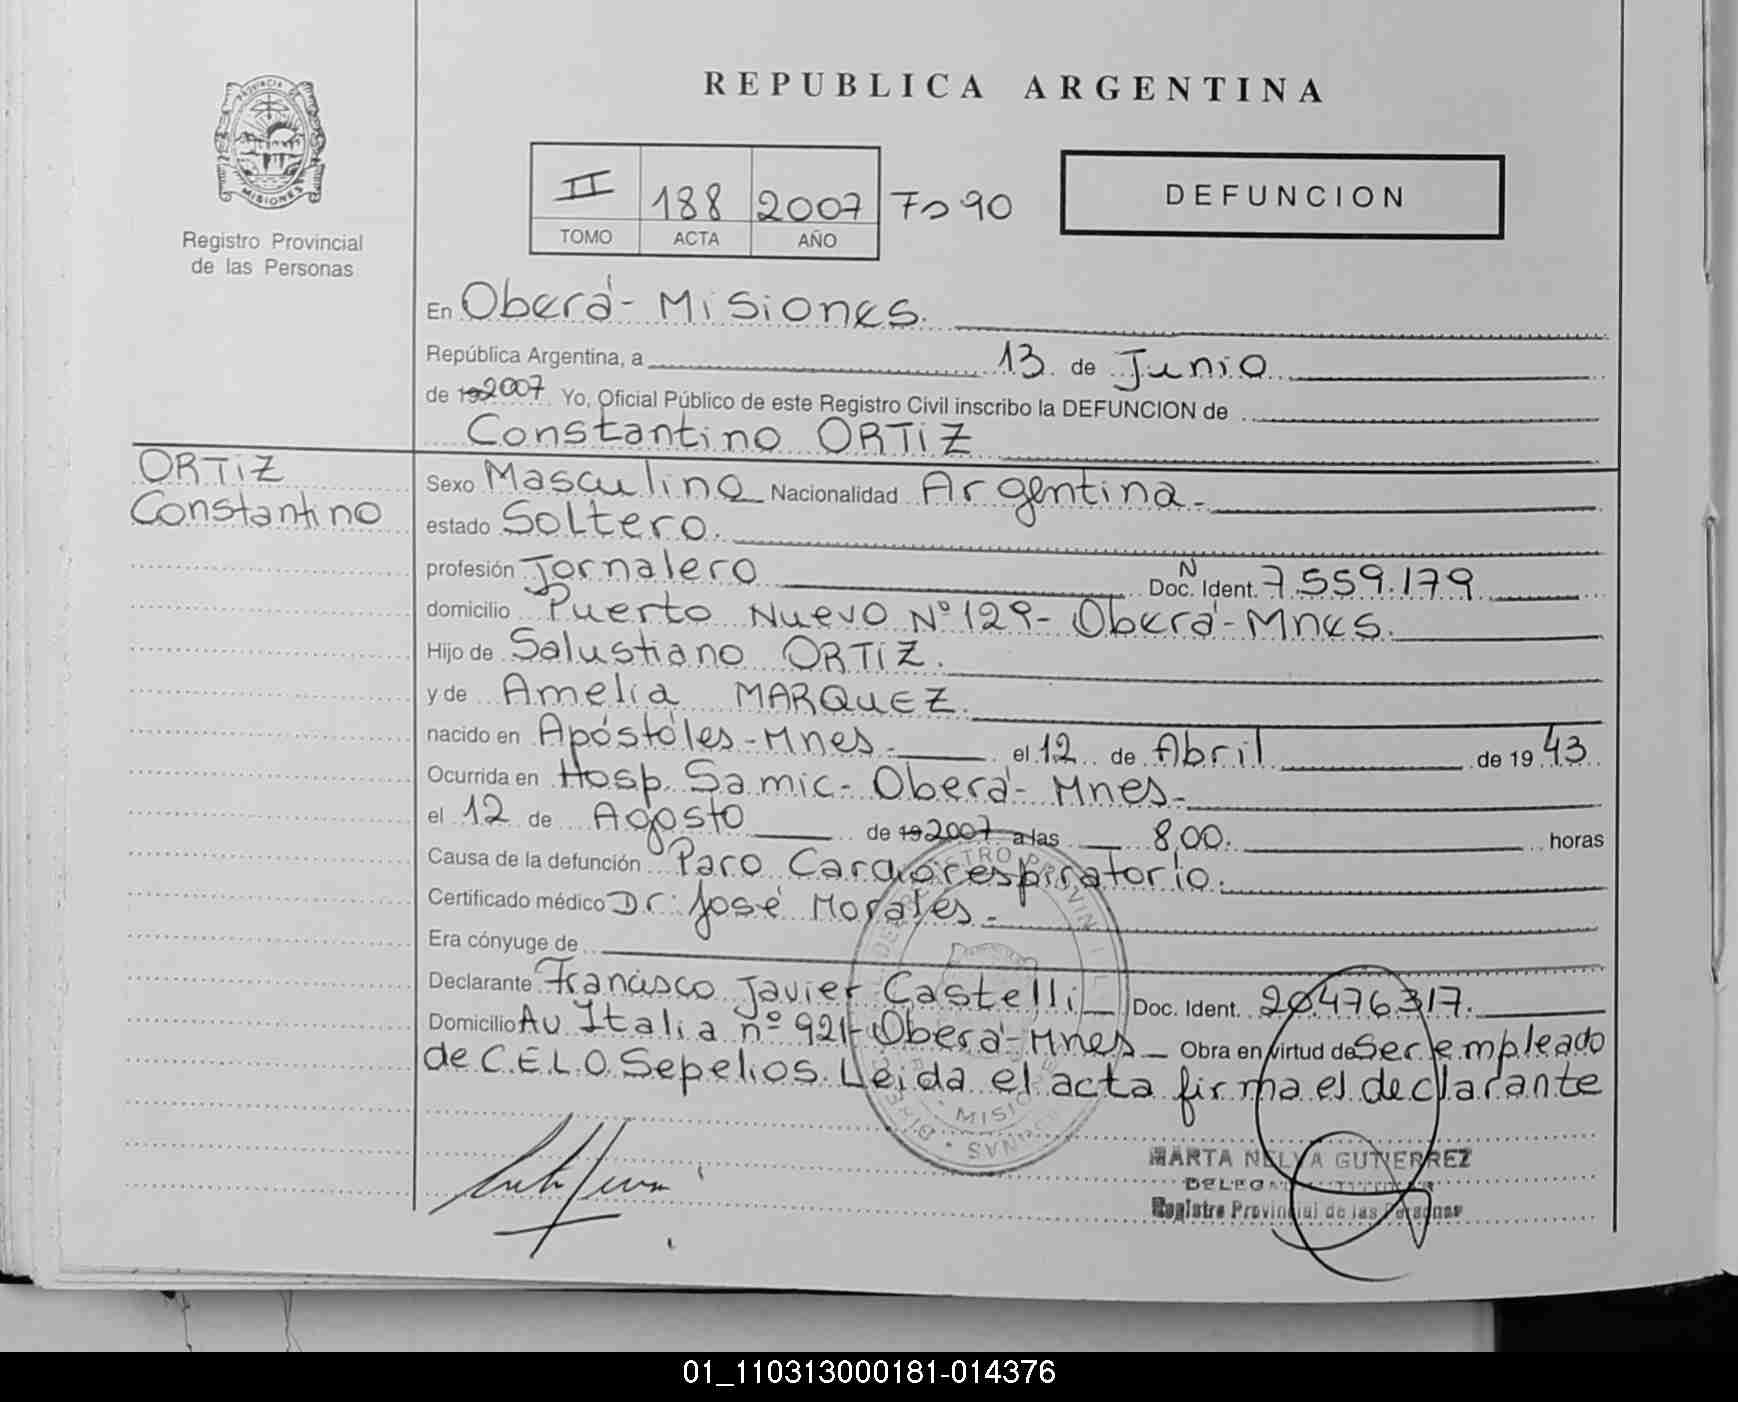 REPUBLICA ARGENTINA
PROVINCIA DE
MISIONES
Registro Provincial
de las Personas
II 188 2007 Fo 90
TOMO ACTA AÑO
DEFUNCION
En Oberá - Misiones.
República Argentina, a 13 de Junio
de 19 2007 Yo, Oficial Público de este Registro Civil inscribo la DEFUNCION de
Constantino ORTIZ
ORTIZ
Constantino
Sexo Masculino Nacionalidad Argentina -
estado Soltero.
profesión Jornalero Doc. N Ident. 7.559.179
domicilio Puerto Nuevo Nº 129 - Oberá - Mnes.
Hijo de Salustiano ORTIZ.
y de Amelia MARQUEZ.
nacido en Apóstóles - Mnes - el 12 de Abril de 19 43
Ocurrida en Hosp. Samic - Oberá - Mnes -
el 12 de Agosto de 19 2007 a las 8,00. horas
Causa de la defunción Paro Cardiorespiratorio.
Certificado médico Dr. José Morales -
Era cónyuge de
Declarante Francisco Javier Castelli Doc. Ident. 20476317.
Domicilio Av Italia nº 921 - Oberá - Mnes - Obra en virtud de Ser empleado
de C.E.L.O. Sepelios. Leida el acta firma el declarante
MARTA NELVA GUTIERREZ
DELEGADA TITULAR
Registro Provincial de las Personas
01_110313000181-014376